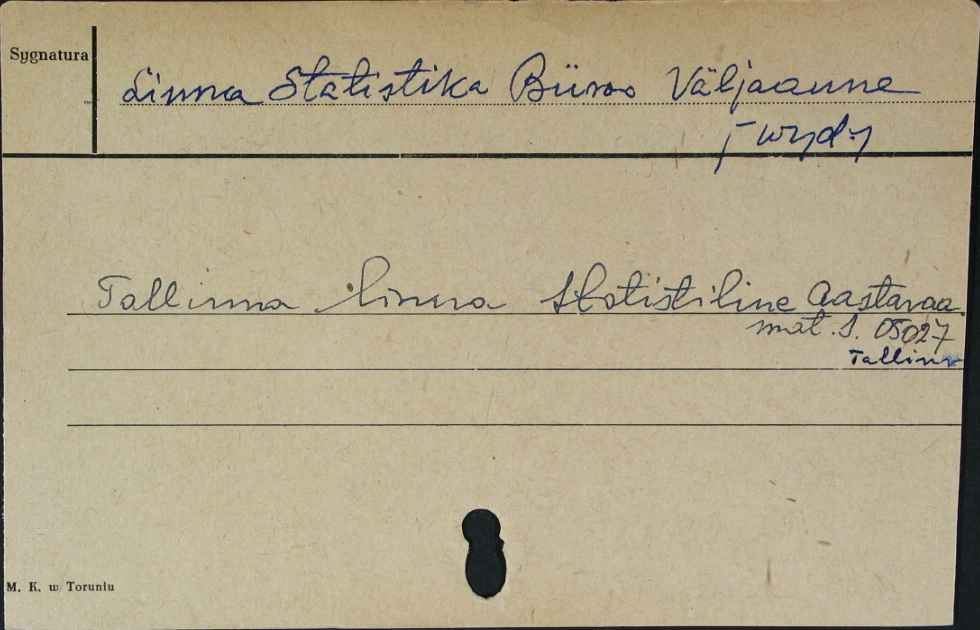 Sygnatura
Linna Statistika Büroo Väljaanne
wyd.
Tallinna linna Statistiline Aastaraa
mat. S. 05027
Tallinn
M. K. w Toruniu